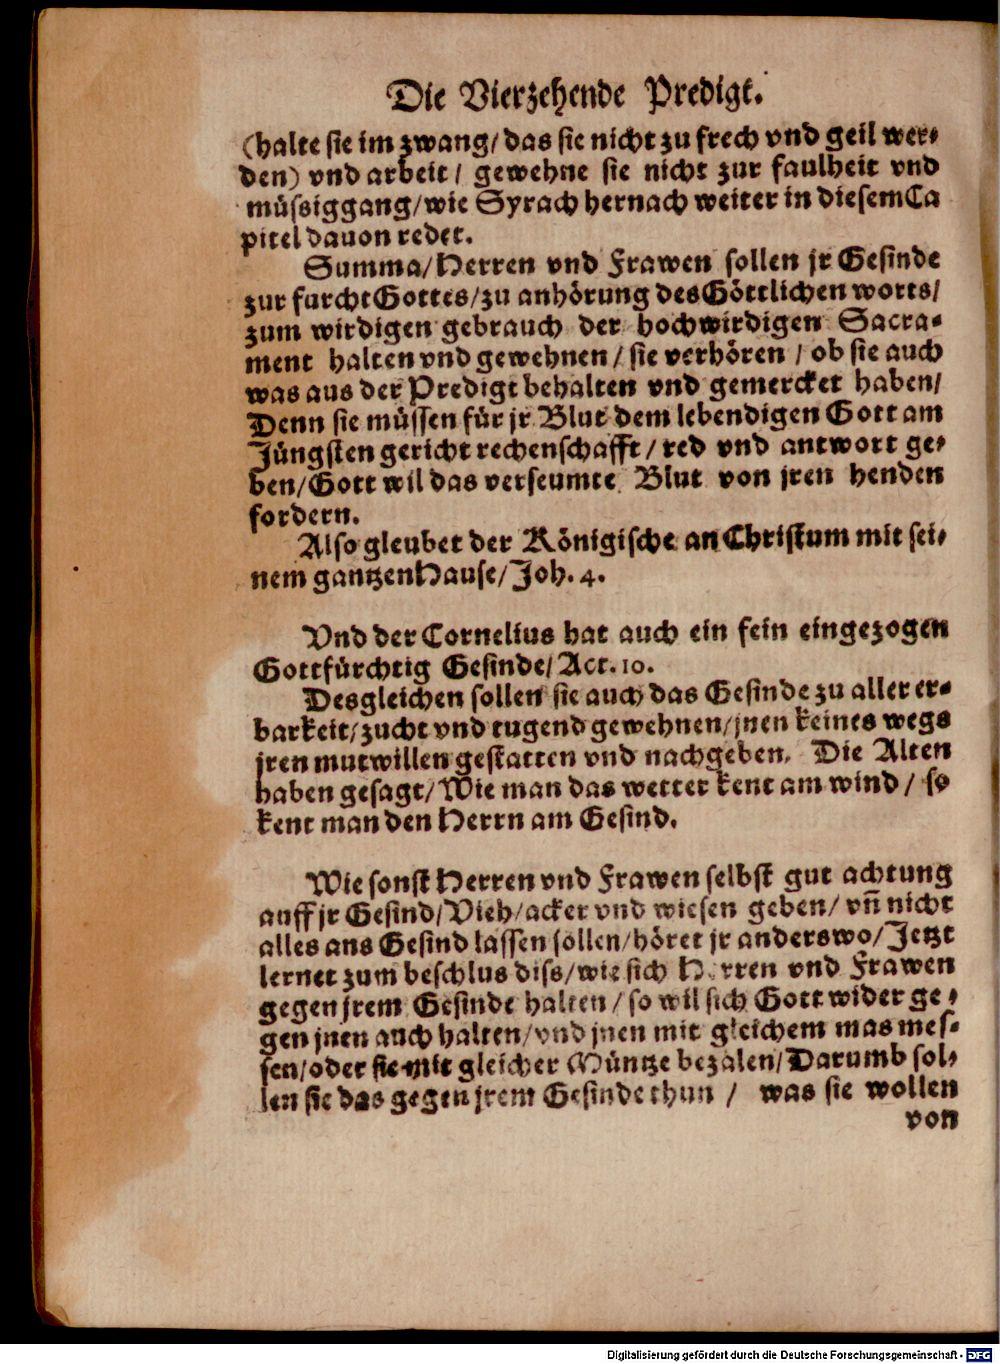 Die Vierzehende Predigt.
(halte sie im zwang/ das sie nicht zu frech vnd geil wer-
den) vnd arbeit/ gewehne sie nicht zur faulheit vnd
müssiggang/ wie Syrach hernach weiter in diesem Ca
pitel dauon redet.
Summa/ Herren vnd Frawen sollen jr Gesinde
zur furcht Gottes/ zu anhörung des Göttlichen worts/
zum wirdigen gebrauch der hochwirdigen Sacra-
ment halten vnd gewehnen/ sie verhören/ ob sie auch
was aus der Predigt behalten vnd gemercket haben/
Denn sie müssen für jr Blut dem lebendigen Gott am
Jüngsten gericht rechenschafft/ red vnd antwort ge-
ben/ Gott wil das verseumte Blut von jren henden
fordern.
Also gleubet der Königische an Christum mit sei-
nem gantzen Hause/ Joh. 4.
Vnd der Cornelius hat auch ein fein eingezogen
Gottfürchtig Gesinde/ Act. 10.
Desgleichen sollen sie auch das Gesinde zu aller er-
barkeit/ zucht vnd tugend gewehnen/ jnen keines wegs
jren mutwillen gestatten vnd nachgeben. Die Alten
haben gesagt/ Wie man das wetter kent am wind/ so
kent man den Herrn am Gesind.
Wie sonst Herren vnd Frawen selbst gut achtung
auff jr Gesind/ Vieh/ acker vnd wiesen geben/ vn̄ nicht
alles ans Gesind lassen sollen/ höret jr anderswo/ Jetzt
lernet zum beschlus diss/ wie sich Herren vnd Frawen
gegen jrem Gesinde halten/ so wil sich Gott wider ge-
gen jnen auch halten/ vnd jnen mit gleichem mas mes-
sen/ oder sie mit gleicher Müntze bezalen/ Darumb sol-
len sie das gegen jrem Gesinde thun/ was sie wollen
von
Digitalisierung gefördert durch die Deutsche Forschungsgemeinschaft - DFG